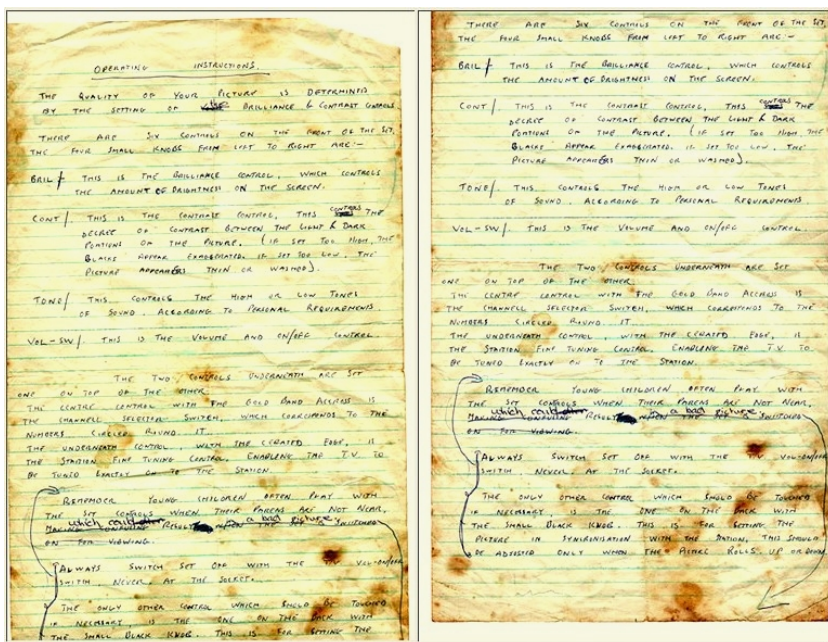 OPERATING INSTRUCTIONS.
THE QUALITY OF YOUR PICTURE IS DETERMINED
BY THE SETTING OF THE BRILLIANCE & CONTRAST CONTROLS
THERE ARE SIX CONTROLS ON THE FRONT OF THE SET,
THE FOUR SMALL KNOBS FROM LEFT TO RIGHT ARE:-
BRIL/. THIS IS THE BRILLIANCE CONTROL, WHICH CONTROLS
THE AMOUNT OF BRIGHTNESS ON THE SCREEN.
CONT/. THIS IS THE CONTRAST CONTROL, THIS CONTROLS THE
DECREE OF CONTRAST BETWEEN THE LIGHT & DARK
PORTIONS OF THE PICTURE. (IF SET TOO HIGH, THE
BLACKS APPEAR EXAGGERATED. IF SET TOO LOW, THE
PICTURE APPEARS THIN OR WASHED).
TONE/. THIS CONTROLS THE HIGH OR LOW TONES
OF SOUND. ACCORDING TO PERSONAL REQUIREMENTS
VOL-SW/. THIS IS THE VOLUME AND ON/OFF CONTROL.
THE TWO CONTROLS UNDERNEATH ARE SET
ONE ON TOP OF THE OTHER.
THE CENTRE CONTROL WITH THE GOLD BAND ACCROSS IS
THE CHANNELL SELECTOR SWITCH, WHICH CORRISPONDS TO THE
NUMBERS CIRCLED ROUND IT.
THE UNDERNEATH CONTROL, WITH THE CERATED EDGE, IS
THE STATION FINE TUNING CONTROL. ENABLENE THE T.V. TO
BE TUNED EXACTLY ON TO THE STATION.
REMEMBER YOUNG CHILDREN OFTEN PLAY WITH
THE SET CONTROLS WHEN THEIR PARENS ARE NOT NEAR,
which could RESULT in a bad picture SWITCHED
ON FOR VIEWING.
ALWAYS SWITCH SET OFF WITH THE T.V VOL-ON/OFF
SWITH. NEVER. AT THE SOCKET.
THE ONLY OTHER CONTROL WHICH SHOLD BE TOUCHED
IF NECESSARY, IS THE ONE ON THE BACK WITH
THE SMALL BLACK KNOB. THIS IS FOR SETTING THE
THERE ARE SIX CONTROLS ON THE FRONT OF THE SET,
THE FOUR SMALL KNOBS FROM LEFT TO RIGHT ARE:-
BRIL/. THIS IS THE BRILLIANCE CONTROL, WHICH CONTROLS
THE AMOUNT OF BRIGHTNESS ON THE SCREEN.
CONT/. THIS IS THE CONTRAST CONTROL, THIS CONTROLS THE
DECREE OF CONTRAST BETWEEN THE LIGHT & DARK
PORTIONS OF THE PICTURE. (IF SET TOO HIGH, THE
BLACKS APPEAR EXAGGERATED. IF SET TOO LOW, THE
PICTURE APPEARS THIN OR WASHED).
TONE/. THIS CONTROLS THE HIGH OR LOW TONES
OF SOUND. ACCORDING TO PERSONAL REQUIREMENTS
VOL-SW/. THIS IS THE VOLUME AND ON/OFF CONTROL.
THE TWO CONTROLS UNDERNEATH ARE SET
ONE ON TOP OF THE OTHER.
THE CENTRE CONTROL WITH THE GOLD BAND ACCROSS IS
THE CHANNELL SELECTOR SWITCH, WHICH CORRISPONDS TO THE
NUMBERS CIRCLED ROUND IT.
THE UNDERNEATH CONTROL, WITH THE CERATED EDGE, IS
THE STATION FINE TUNING CONTROL. ENABLENE THE T.V. TO
BE TUNED EXACTLY ON TO THE STATION.
REMEMBER YOUNG CHILDREN OFTEN PLAY WITH
THE SET CONTROLS WHEN THEIR PARENS ARE NOT NEAR,
which could RESULT in a bad picture SWITCHED
ON FOR VIEWING.
ALWAYS SWITCH SET OFF WITH THE T.V VOL-ON/OFF
SWITH. NEVER. AT THE SOCKET.
THE ONLY OTHER CONTROL WHICH SHOLD BE TOUCHED
IF NECESSARY, IS THE ONE ON THE BACK WITH
THE SMALL BLACK KNOB. THIS IS FOR SETTING THE
PICTURE IN SYNCRINISATION WITH THE STATION, THIS SHOULD
BE ADJUSTED ONLY WHEN THE PICTURE ROLLS. UP OR DOWN